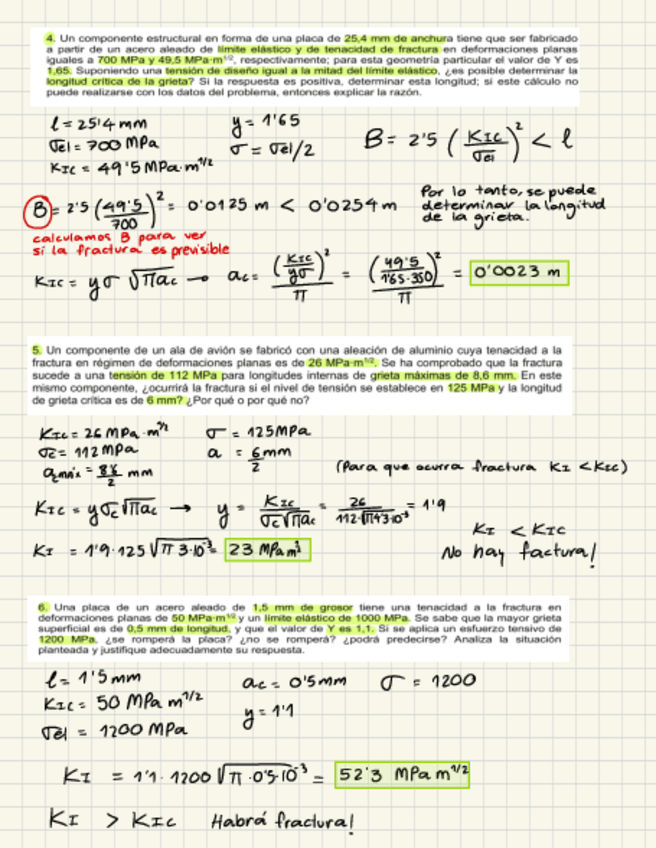 4. Un componente estructural en forma de una placa de 25,4 mm de anchura tiene que ser fabricado
a partir de un acero aleado de límite elástico y de tenacidad de fractura en deformaciones planas
iguales a 700 MPa y 49,5 MPa·m^1/2, respectivamente; para esta geometría particular el valor de Y es
1,65. Suponiendo una tensión de diseño igual a la mitad del límite elástico, ¿es posible determinar la
longitud crítica de la grieta? Si la respuesta es positiva, determinar esta longitud; si este cálculo no
puede realizarse con los datos del problema, entonces explicar la razón.
l = 25'4 mm
σel = 700 MPa
KIC = 49'5 MPa·m^1/2
y = 1'65
σ = σel/2
B = 2'5 (KIC/σel)^2 < l
B = 2'5 (49'5/700)^2 = 0'0125 m < 0'0254 m
Por lo tanto, se puede
determinar la longitud
de la grieta.
calculamos B para ver
si la fractura es previsible
KIC = yσ √πac → ac = (KIC/yσ)^2/π = (49'5/1'65·350)^2/π = 0'0023 m
5. Un componente de un ala de avión se fabricó con una aleación de aluminio cuya tenacidad a la
fractura en régimen de deformaciones planas es de 26 MPa·m^1/2. Se ha comprobado que la fractura
sucede a una tensión de 112 MPa para longitudes internas de grieta máximas de 8,6 mm. En este
mismo componente, ¿ocurrirá la fractura si el nivel de tensión se establece en 125 MPa y la longitud
de grieta crítica es de 6 mm? ¿Por qué o por qué no?
KIC = 26 MPa·m^1/2
σc = 112 MPa
amáx = 8'6/2 mm
σ = 125 MPa
a = 6/2 mm
(Para que ocurra fractura KI < KIC)
KIC = yσc√πac → y = KIC/σc√πac = 26/112·√π4'3·10^-3 = 1'9
KI = 1'9·125 √π 3·10^-3 = 23 MPa m^½
KI < KIC
No hay factura!
6. Una placa de un acero aleado de 1,5 mm de grosor tiene una tenacidad a la fractura en
deformaciones planas de 50 MPa·m^1/2 y un límite elástico de 1000 MPa. Se sabe que la mayor grieta
superficial es de 0,5 mm de longitud, y que el valor de Y es 1,1. Si se aplica un esfuerzo tensivo de
1200 MPa, ¿se romperá la placa? ¿no se romperá? ¿podrá predecirse? Analiza la situación
planteada y justifique adecuadamente su respuesta.
l = 1'5 mm
KIC = 50 MPa m^1/2
σel = 1200 MPa
ac = 0'5 mm
y = 1'1
σ = 1200
KI = 1'1· 1200 √π ·0'5·10^-3 = 52'3 MPa m^1/2
KI > KIC Habrá fractura!